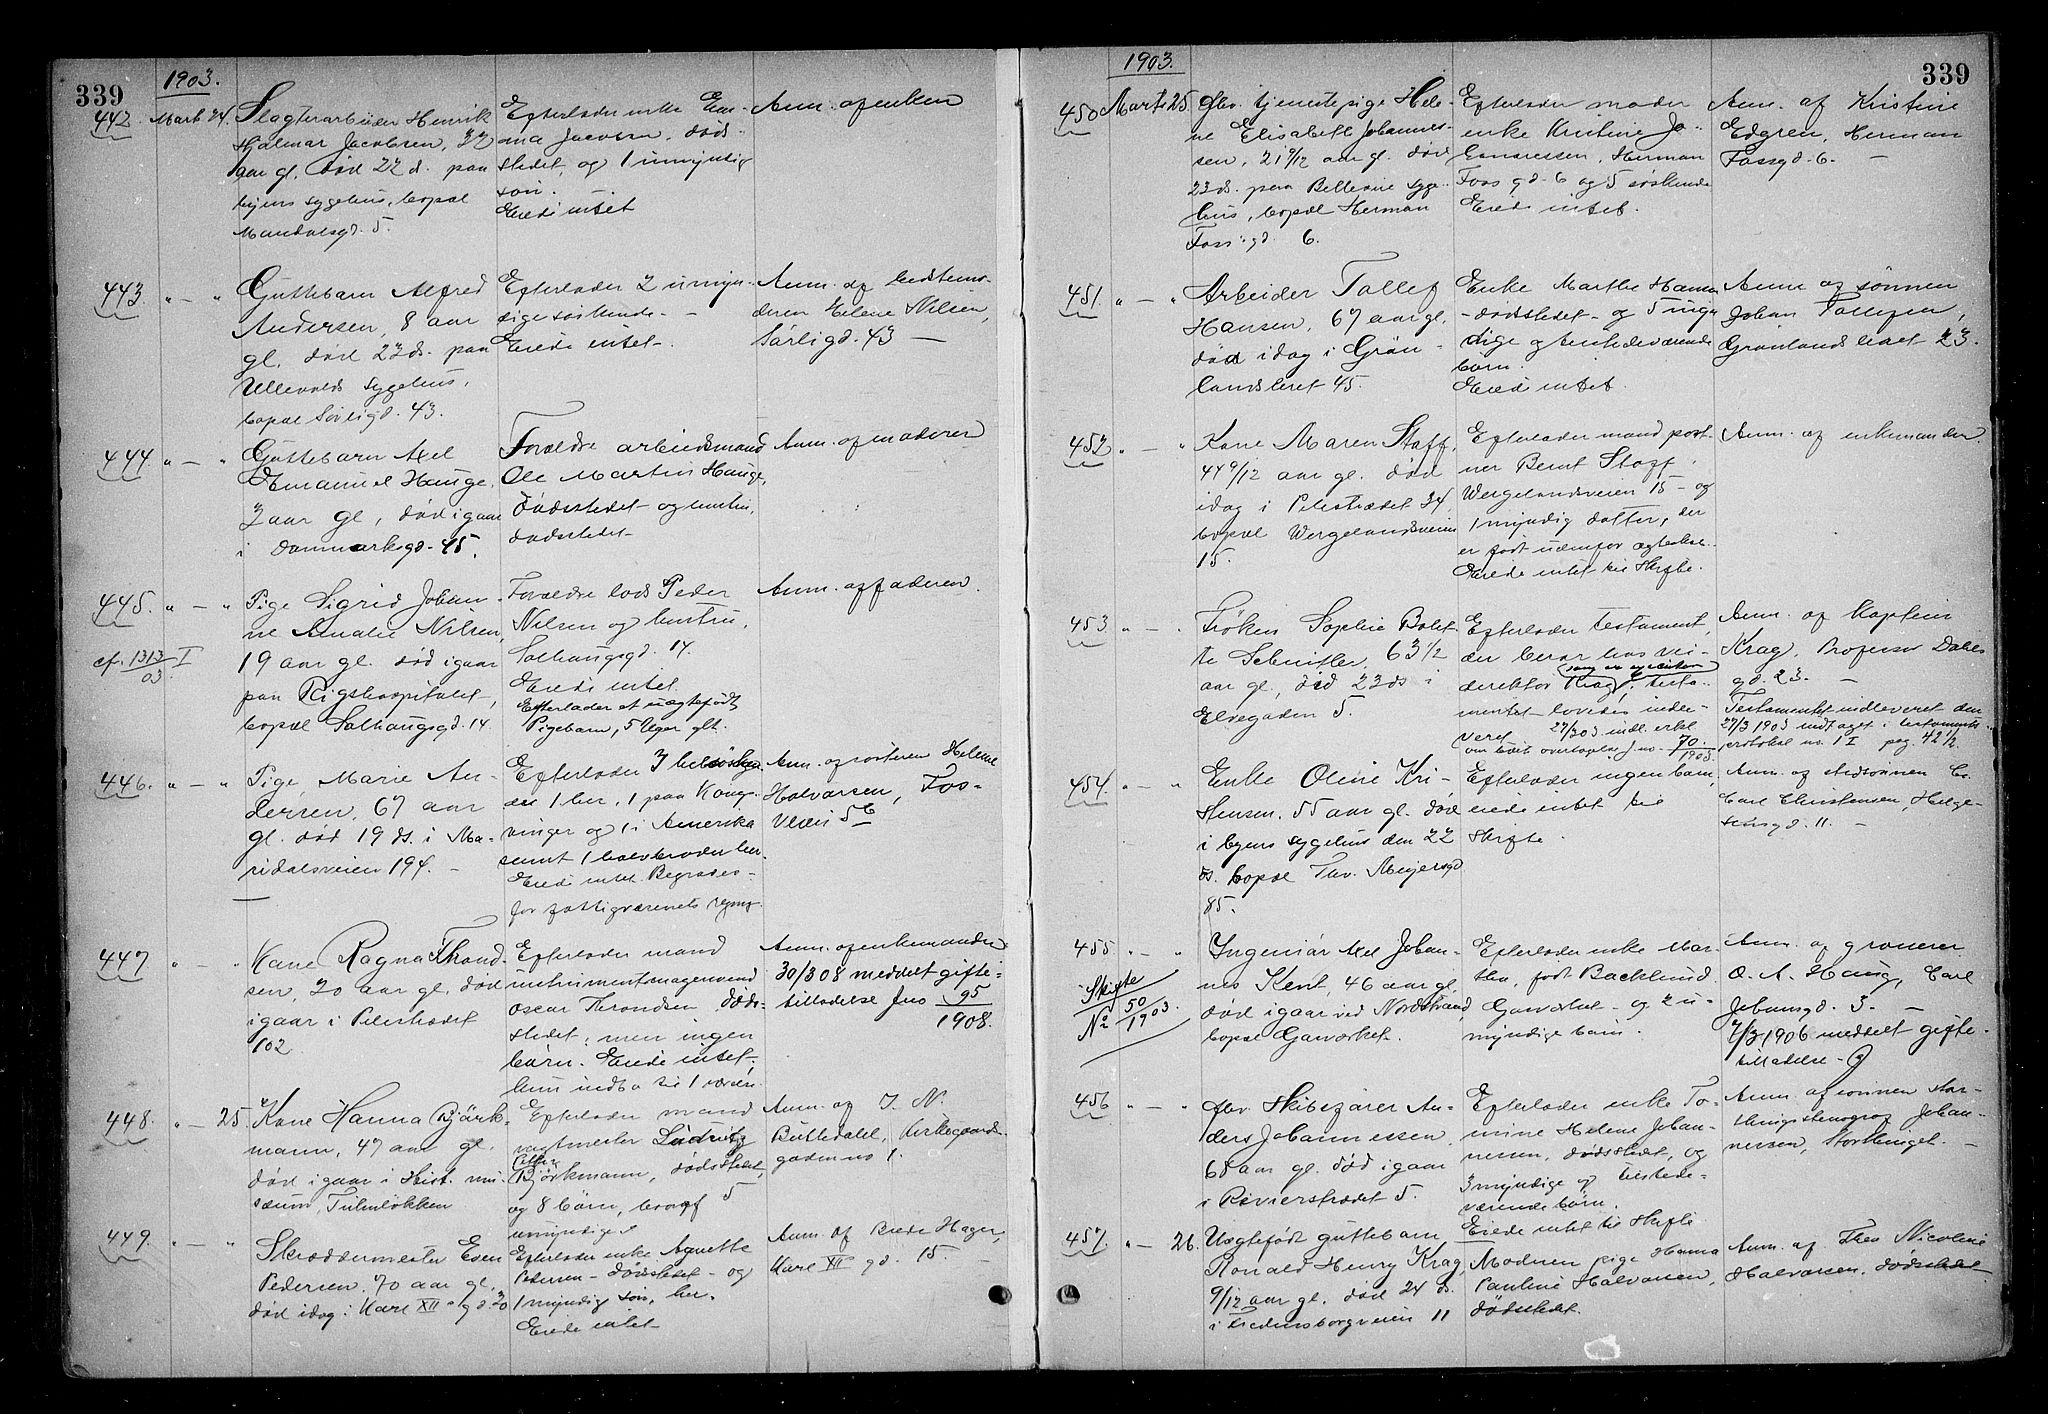 339
1903.
442. Marts 24.
Slagterarbeider Henrik
Hjalmar Jacobsen, 32
aar gl. død 22 ds. paa
byens sygehus, bopæl
Mandalsgd. 5.
Efterlader enke Em-
ma Jacobsen, døds-
stedet, og 1 umyndig
søn.
Eiede intet
Anm. af enken
443. " — "
Guttebarn Alfred
Andersen, 8 aar
gl. død 23 ds. paa
Ullevolds sygehus,
bopæl Sørligd. 43.
Efterlader 2 umyn-
dige søskende. —
Eiede intet.
Anm. af bedstemo-
deren Helene Nilsen,
Sørligd. 43 —
444. " — "
Guttebarn Axel
Emanuel Hauge,
2 aar gl, død igaar
i Danmarksgd. 45.
Forældre arbeidsmand
Ole Martin Hauge,
dødsstedet og hustru,
dødsstedet
Anm. af moderen
445. " — "
cf. 1313/03 I
Pige Sigrid Johan-
ne Amalie Nilsen,
19 aar gl. død igaar
paa Rigshospitalet,
bopæl Solhaugsgd. 14
Forældre lods Peder
Nilsen og hustru,
Solhaugsgd. 14.
Eiede intet.
Efterlader et uægtefødt
Pigebarn, 5 Uger glt.
Anm. af faderen.
446. " — "
Pige, Marie An-
dersen, 67 aar
gl. død 19 ds. i Ma-
ridalsveien 194. —
Efterlader 3 helsøsken-
de 1 her, 1 paa Kongs-
vinger og 1 i Amerika
samt 1 halvbroder her.
Eiede intet. Begraves
for fattigvæsenets regng.
Anm. af søsteren Helene
Halvorsen, Fos-
veien 5 c
447 " — "
Kone Ragna Thrond-
sen, 20 aar gl. død
igaar i Pilestrædet
102
Efterlader mand
instrumentmagersvend
Oscar Throndsen, døds-
stedet, men ingen
børn. Eiede intet.
Anm. af enkemanden
30/3 08 meddelt gifte-
tilladelse Jns 95/1908.
448. " — 25.
Kone Hanna Björk-
mann, 47 aar gl.
død igaar i Hist. mu-
sæum, Tulinløkken
Efterlader mand
vagtmester Ludvig
Petter
Björkmann, dødsstedet,
og 8 børn, hvoraf 5
umyndige
Anm. af J. N.
Butledahl, Kirkegaards-
gaden no 1.
449. " — "
Skræddermester Even
Pedersen, 70 aar gl.
død idag i Karl XII s gd. 20
Efterlader enke Agnette
Pedersen — dødsstedet — og
1 myndig søn, her.
Eiede intet
Anm. af Brede Hager,
Karl XII gd. 15. —
339
1903.
450 Marts 25.
Ugiv. tjenestepige Hele-
ne Elisabeth Johannes-
sen, 21 9/12 aar gl. død
23 ds. paa Bellevue syge-
hus, bopæl Herman
Foss' gd. 6.
Efterlader moder
enke Kristine Jo-
hannessen, Herman
Foss gd. 6 og 5 søskende
Eiede intet.
Anm. af Kristine
Edgren, Herman
Fossgd. 6. —
451. " — "
Arbeider Tollef
Hansen, 67 aar gl.
død idag i Grøn-
landsleret 45.
Enke Marthe Hansen
— dødsstedet — og 5 myn-
dige og tilstedeværende
børn.
Eiede intet.
Anm af sønnen
Johan Tollefsen,
Grønlandsleret 23.
452 " — "
Kone Maren Staff,
44 9/12 aar gl. død
idag i Pilestrædet 34
bopæl Wergelandsveien
15.
Efterlader mand port-
ner Bernt Staff.
Wergelandsveien 15 — og
1 myndig datter, der
er født udenfor ægteskab.
Eiede intet til Skifte.
Anm. af enkemanden.
453. " — "
Frøken Sophie Bolet-
te Schnitler, 63 1/2
aar gl., død 23 ds i
Elvegaden 5.
Efterlader testament,
der beror hos vei-
direktør Krag,
testa-
mentet lovedes inde-
veret 27/3 03 indl.
no. 70/1903.
Anm. af Kaptein
Krag, Professor Dahls
gd. 23. —
Testamentet indleveret den
27/3 1903 indtaget i testaments-
protokol no. 1 I pag. 42 1/2.
454. " — "
Enke Oline Kri-
stensen, 55 aar gl. død
i byens sygehus den 22
ds. bopæl Thv. Meyersgd
85.
Efterlader ingen barn,
eiede intet til
Skifte.
Anm. af stedsønnen
Carl Christensen, Helge-
sensgd. 11. —
455 " — "
Skifte
No 50/1903.
Ingeniør Axel Johan-
nes Kent, 46 aar gl.
død igaar ved Nordstrand,
bopæl Gasværket.
Efterlader enke Mar-
tha, født Backlund.
Gasværket — og 2 u-
myndige børn.
Anm. af grosserer
O. A. Haug, Carl
Johansgd. 3. —
7/3 1906 meddelt gifte-
tilladelse.
456 " — "
Fhv. Skibsfører An-
ders Johannessen,
68 aar gl. død igaar
i Revierstrædet 5.
Efterlader enke To-
mine Helene Johan-
nessen, dødsstedet, og
3 myndige og tilstede-
værende børn.
Eiede intet til Skifte
Anm. af sønnen stor-
thingsstenograf Johan-
nessen, Storthinget. —
457. " — 26.
Uægtefødt guttebarn
Ronald Henry Krag,
9/12 aar gl. død 24 ds.
i Fredensborgveien 11
Moderen pige Hanna
Pauline Halvorsen,
dødsstedet.
Anm. af Fhv Nicoline
Halvorsen, dødsstedet